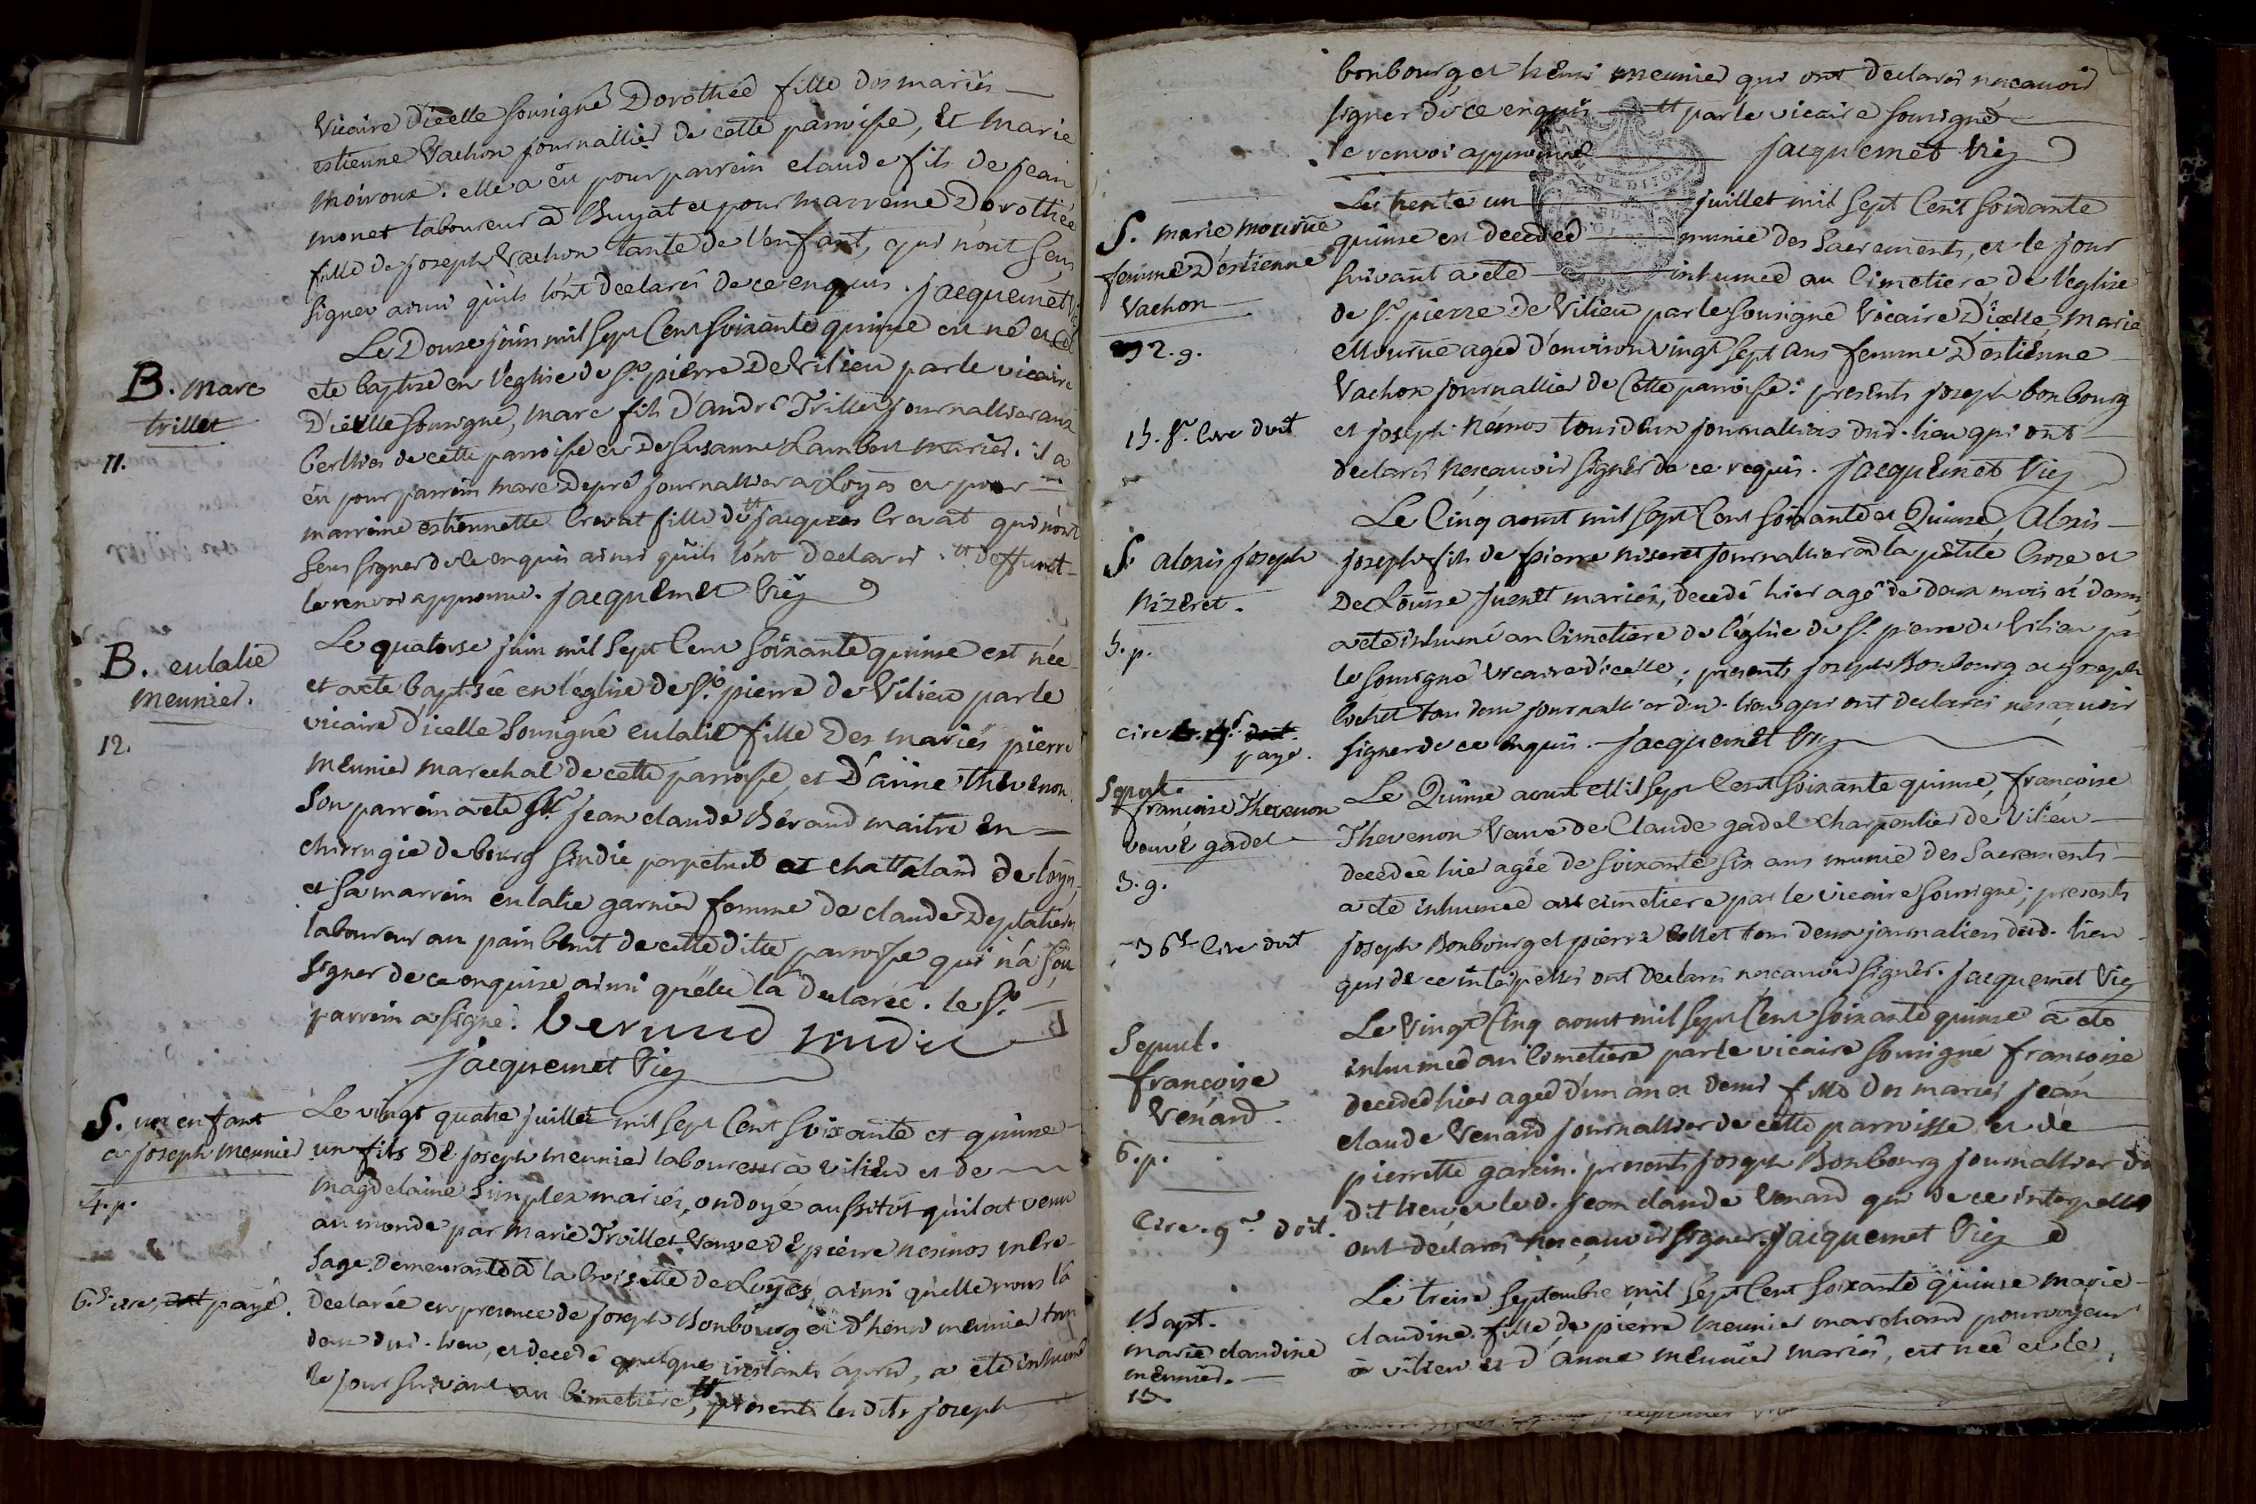 vicaire d'icelle sousigné Dorothée fille des mariés
estienne Vachon journallier de cette parroisse, et Marie
Moiroux. elle a eu pour parrein claude fils de jean
monet laboureur à Buyat et pour marreine Dorothée
fille de joseph Vachon tante de l'enfant, qui n'ont seu
signer ainsi qu'ils l'ont declaré de ce enquis. jacquemet
B. Marc
trillet
11.
Le Douse juin mil sept Cent soixante quinse est né et a
eté baptisé en l'eglise de St. pierre de Vilieu par le vicaire
D'icelle sousigné, Marc fils d'andré Trillet journallier aux
berthes de cette parroisse et de susanne Lambert mariés. il a
eu pour parrein marc Depré journallier a Loyes et pour
marreine estiennette Cravat fille de tt jacques Cravat qui n'ont
seu signer de ce enquis ainsi qu'ils l'ont declaré. tt deffunt
le renvoi approuvé. jacquemet Vic
B. eulalie
meunier.
12.
Le quatorse juin mil sept Cent soixante quinse est née
et a eté baptisée en l'eglise de St. pierre de Vilieu par le
vicaire d'icelle sousigné eulalie fille Des mariés pierre
meunier marechal de cette parroisse, et D'anne thevenon.
son parrein a eté Sr. jean claude Béraud maitre en
chirrugie de bourg sindic perpetuel et chattelard de loyes
et sa marrein eulalie garnier femme de claude Deplatiere
laboureur au pain benit de cette ditte parroisse qui n'a seu
signer de ce enquise ainsi qu'elle l'a declarée. le Sr.
parrein a signé. beraud sindic
jacquemet Vic
S. un enfant
a joseph meunier
4. p.
6.s cire, doit payé.
Le vingt quatre juillet mil sept Cent soixante et quinse
un fils de joseph meunier laboureur à vilieu et de
magdelaine simplex mariés, ondoyé aussitôt qu'il at venu
au monde par marie Troillet veuve de pierre nesmos mere
sage, demeurante à la Croisette de Loyes, ainsi qu'elle nous l'a
declarée en presence de joseph Bonbourg et d'henri meunier tous
deux dud. lieu, et decedé quelques instants après, a eté inhumé
le jour suivant au cimetiere, tt presents lesdits joseph
bonbourg et henri meunier qui ont declarés ne scavoir
signer de ce enquis tt par le vicaire sousigné
le renvoi approuvé jacquemet Vic
S. marie mourrue
femme d'estienne
Vachon
2. g.
15. s. Cire doit
Le trente un juillet mil sept Cent soixante
quinse est decedée munie des sacrements, et le jour
suivant a eté inhumée au cimetiere de l'eglise
de St. pierre de Vilieu par le sousigné Vicaire d'icelle, Marie
Mourrue agée d'environ vingt sept ans femme d'estienne
Vachon journallier de cette parroisse: presents joseph bonbourg
et joseph némos tous deux journalliers dud. lieu qui ont
declarés ne scavoir signer de ce requis. jacquemet Vic
S. alexis joseph
nizeret.
5. p.
cire doit
payé.
Le Cinq aoust mil sept Cent soixante et Quinse, Alexis
joseph fils de pierre niseret journallier à la petite Croze et
De Louise Juenet mariés, decedé hier agé de deux mois et demi,
a eté inhumé au cimetiere de l'eglise de St. pierre de Vilieu par
le sousigné vicaire d'icelle; presents joseph Bonbourg et joseph
cochet tous deux journalliers dud. lieu qui ont declarés ne scavoir
signer de ce enquis. jacquemet Vic
Sepul.
francoise Thevenon
veuve gadel
3. g.
36s Cire doit
Le Quinse aoust Mil sept Cent soixante quinse, françoise
Thevenon Veuve de Claude gadel charpentier de Vilieu
decedée hier agée de soixante six ans munie des Sacrements
a eté inhumée au cimetiere par le vicaire sousigné; presents
joseph Bonbourg et pierre collet tous deux journaliers dud. lieu
qui de ce interpellés ont declarés ne scavoir signer. jacquemet Vic
Sepul.
françoise
Venard.
6. p.
Cire. 9s doit.
Le Vingt Cinq aoust mil sept Cent soixante quinse a eté
inhumée au cimetiere par le vicaire sousigné françoise
decedée hier agée d'un an et demi fille des mariés jean
claude Venard journallier de cette parroisse et de
pierrette garcin. presents joseph Bonbourg journallier du
dit lieu et led. jean claude Venard qui de ce interpellés
ont declarés ne scavoir signer. jacquemet Vic
Bapt.
marie claudine
meunier.
13
Le treise septembre mil sept Cent soixante quinse marie
claudine fille de pierre meunier marchand pourvoyeur
à vilieu et d'anne meunier mariés, est née et le